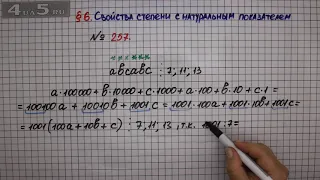 4 на 5
§6. Свойства степени с натуральным показателем
№ 257.
abcabc ⋮ 7, 11, 13
a·100000 + b·10000 + c·1000 + a·100 + b·10 + c·1 =
= 100100a + 10010b + 1001c = 1001·100a + 1001·10b + 1001c =
= 1001(100a + 10b + c) ⋮ 7, 11, 13, т.к. 1001:7=